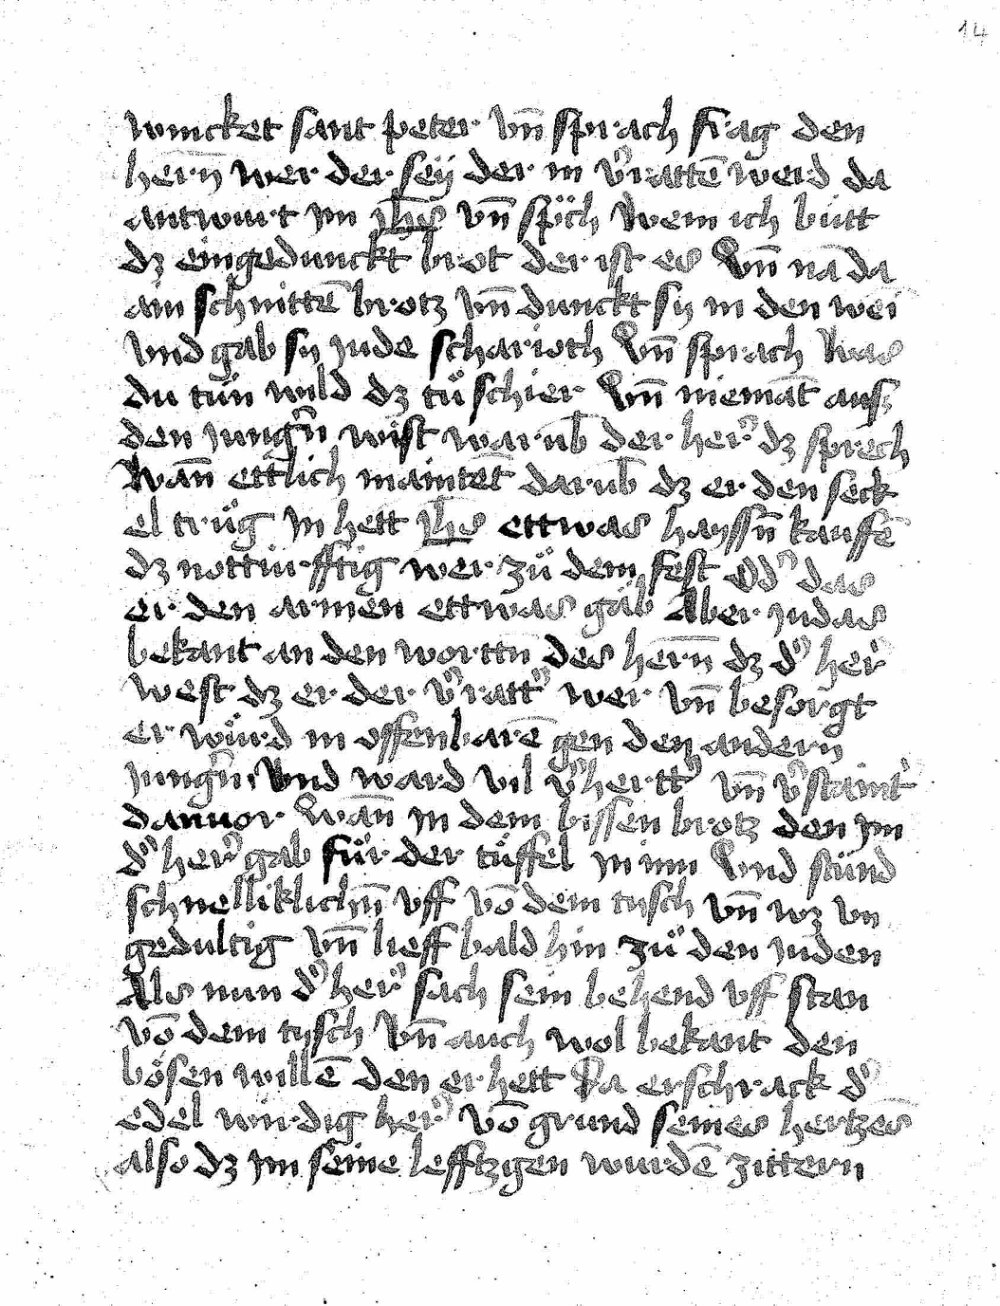 14
wincket sant peter vn̄ sprach frag den
hern̄ wer der seÿ der in v᷑rattē werd da
antwurt jm jh̄s vn̄ sp̈ch wem ich bütt
dz eingedunckt brot der ist es Vn̄ na da
ain schnittē brotz vn̄ dunckt sy in den wei
vnd gab sy jude scharioth Vn̄ sprach was
du tün wild dz tů schier Vn̄ niemāt auß
den jung᷑n wist warūb der her᷑ dz sprech
wān ettlich maintet̄ darūb dz er den seck
el trůg jn hett jh̄s ettwas hayssn̄ kauffē
dz nottürfftig wer zů dem fest od᷑ das
er den armen ettwas gäb Aber judas
bekant an den worttn des hern̄ dz d᷑ her᷑
west dz er der v᷑ratt᷑ wer vn̄ besorgt
er würd in offenbarē gen den andern
jung᷑n vnd ward vil v᷑hertt᷑ vn̄ v᷑staint᷑
danuor Wān jn dem bissen brotz den jm
d᷑ her᷑ gab für der tüffel jn inn Vnd stůnd
schnelliklichn̄ vff vō dem tysch vn̄ wz vn
gedultig vn̄ lieff bald hin zů den juden
Als nun d᷑ her᷑ sach sein behend vff stan
vō dem tysch vn̄ auch wol bekant den
bösen willē den er hett Da erschrack d᷑
edel wirdig her᷑ vō grund seines hertzēs
also dz jm seine lefftzgen wurdē zittern